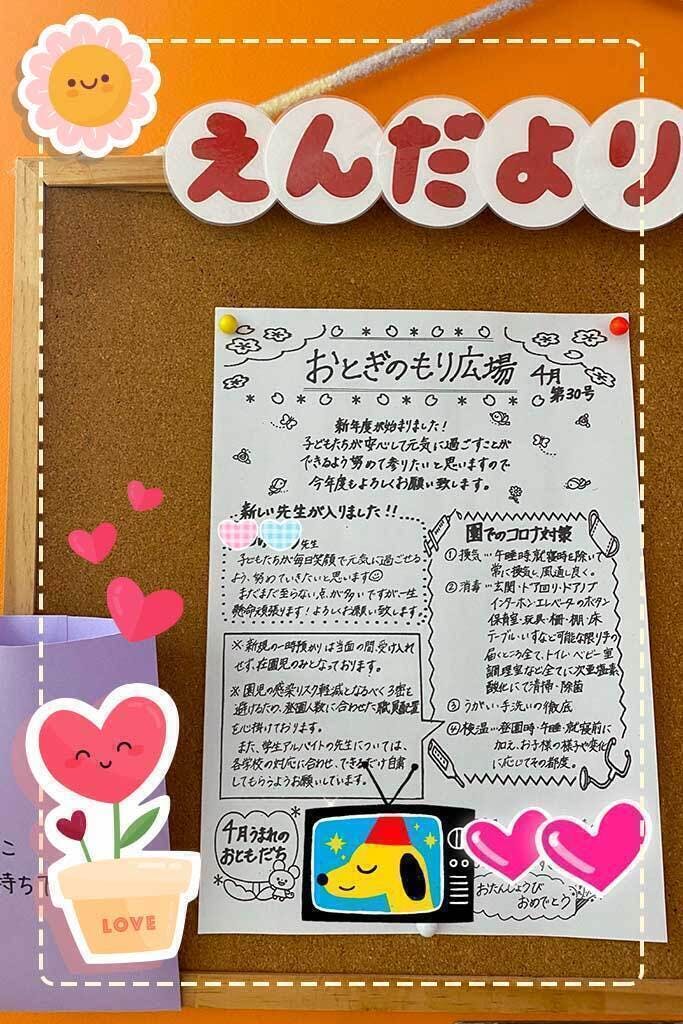 えんだより
おとぎのもり広場 4月
第30号
新年度が始まりました!
子どもたちが安心して元気に過ごすことが
できるよう努めて参りたいと思いますので
今年度もよろしくお願い致します。
新しい先生が入りました!!
先生
子どもたちが毎日笑顔で元気に過ごせる
よう、努めていきたいと思います
まだまだ至らない点が多いですが一生
懸命頑張ります!よろしくお願い致します。
※新規の一時預かりは当面の間、受け入れ
せず、在園児のみとなっております。
※園児の感染リスク軽減となるべく3密を
避けるため、登園人数に合わせた職員配置
を心掛けております。
また、学生アルバイトの先生については、
各学校の対応に合わせ、できるだけ自粛
してもらうようお願いしています。
園でのコロナ対策
①換気…午睡時、就寝時を除いて
常に換気し、風通し良く。
②消毒…玄関・ドア回り・ドアノブ
インターホン・エレベータのボタン
保育室・玩具・柵・棚・床
テーブル・いすなど可能な限り手の
届くところ全て、トイレ・ベビー室
調理室など全てに次亜塩素
酸化にて清掃・除菌
③うがい・手洗いの徹底
④検温…登園時・午睡・就寝前に
加え、お子様の様子や変化
に応じてその都度。
4月うまれの
おともだち
おたんじょうび
おめでとう
こ
待ちて
LOVE